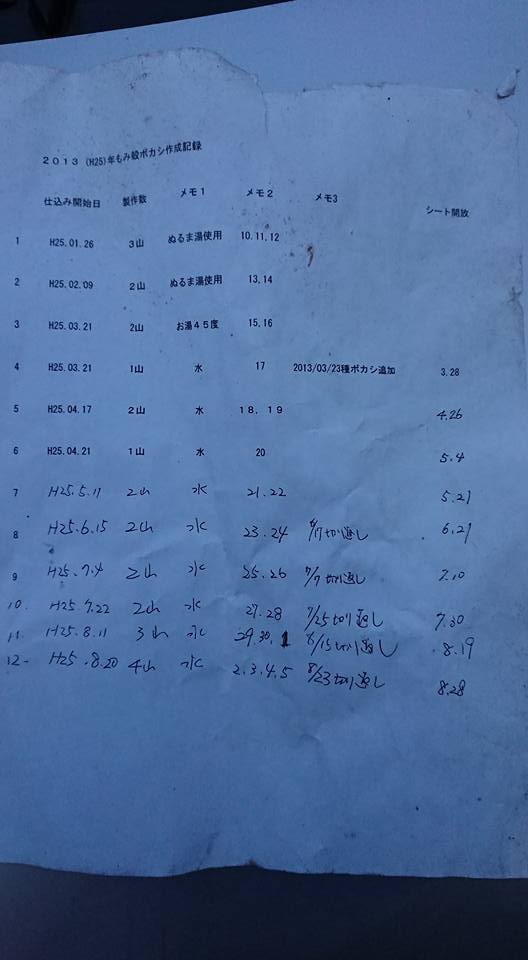 2013 (H25)年もみ殻ボカシ作成記録
仕込み開始日 製作数 メモ1 メモ2 メモ3 シート開放
1 H25.01.26 3山 ぬるま湯使用 10.11.12
2 H25.02.09 2山 ぬるま湯使用 13.14
3 H25.03.21 2山 お湯45度 15.16
4 H25.03.21 1山 水 17 2013/03/23種ボカシ追加 3.28
5 H25.04.17 2山 水 18.19 4.26
6 H25.04.21 1山 水 20 5.4
7 H25.5.11 2山 水 21.22 5.21
8 H25.6.15 2山 水 23.24 6/17切り返し 6.21
9 H25.7.4 2山 水 25.26 7/7切り返し 7.10
10. H25.7.22 2山 水 27.28 7/25切り返し 7.30
11. H25.8.11 3山 水 29.30.1 8/15切り返し 8.19
12- H25.8.20 4山 水 2.3.4.5 8/23切り返し 8.28